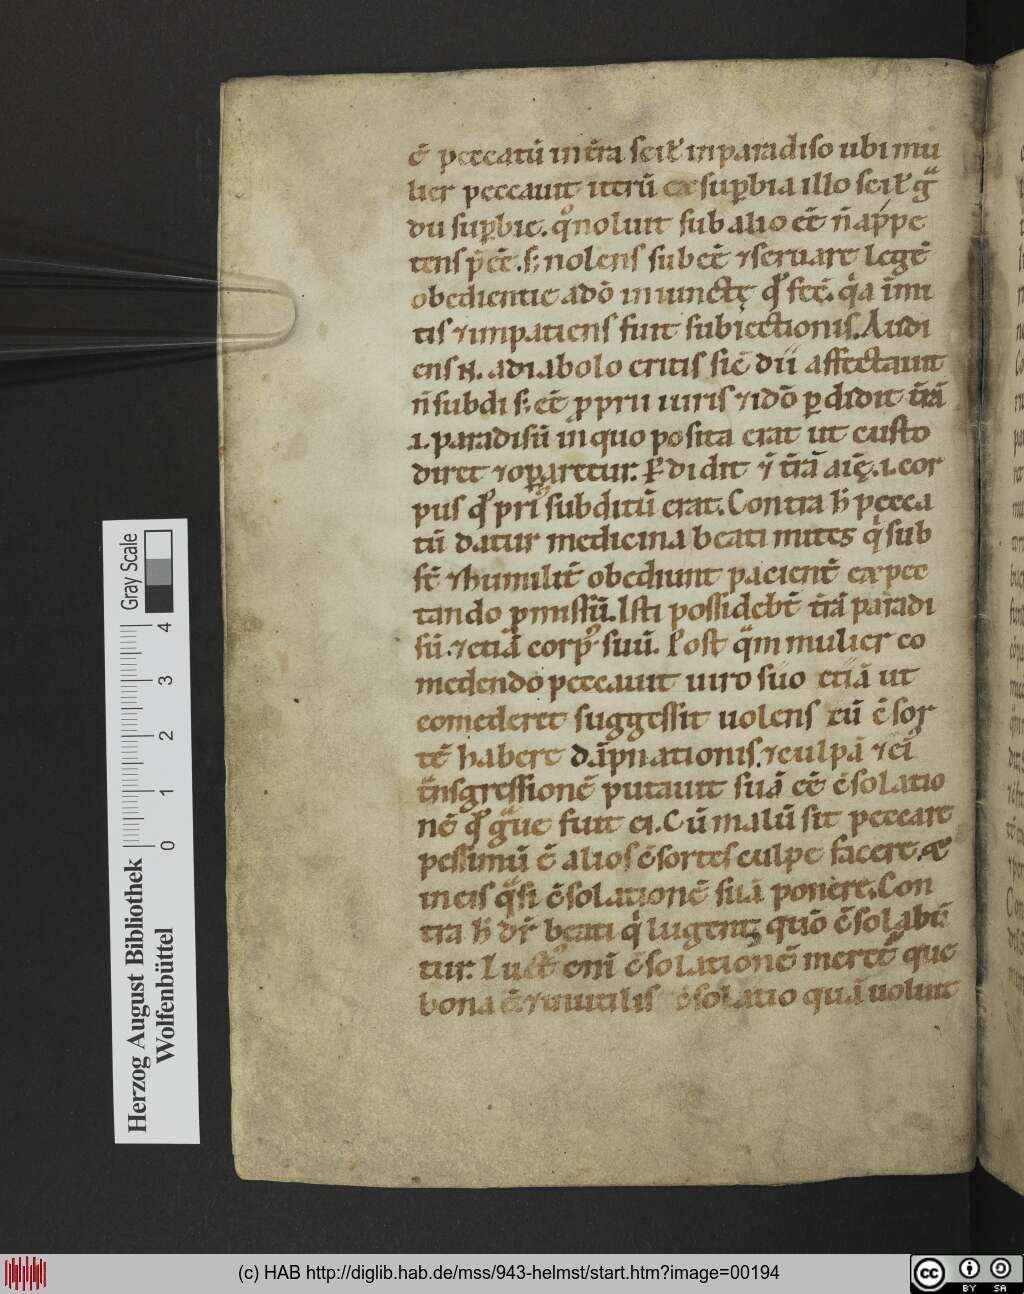 ē peccatū in t̄ra scił in paradiso ubi mu
lier peccauit uterū ex sup̱bia illo scił gͣ
du sup̱bie. qͦ noluit sub alio eē n̄ appe
tens p̄eē. s; nolens subeē ⁊ seruare legē
obedientie a dō iniunctę qđ fec̄. qͥa īmi
tis ⁊ impatiens fuit subiectionis. Audi
ens n̄. a diabolo eritis sic̄ dii affectauit
n̄ subdi s; eē ꝓprii iuris ⁊ idō ꝑdidit t̄rā
.i. paradisū in quo posita erat ut custo
diret ⁊ oꝑaretur. Ꝑdidit ⁊ t̄rā aīę .i. cor
pus qđ pri subditū erat. Contra h̄ pecca
tū datur medicina beati mites qͥ sub
st̄ ⁊ humilit̄ obediunt pacient̄ expec
tando ꝓmissū. Isti possidebt̄ t̄rā paradi
sū. ⁊ etiā corpꝰ suū. Post qͣm mulier co
medendo peccauit uiro suo etiā ut
comederet suggessit uolens cū c̄sor
tē habere dāpnationis. ⁊ culpā ⁊ ei
tͣnsgressionē putauit suā eē c̄solatio
nē qđ gͣue fuit ei. Cū malū sit peccare
pessimū ē alios c̄sortes culpe facere. ⁊
in eis qͣsi c̄solationē suā ponere. Con
tra h̄ dr̄ beati qͥ lugent quō c̄solabū
tur. Luct enī c̄solationē mer que
bona ē. ⁊ inutilis c̄solatio quā uoluit
Gray Scale
0 1 2 3 4
Herzog August Bibliothek
Wolfenbüttel
(c) HAB http://diglib.hab.de/mss/943-helmst/start.htm?image=00194
cc BY SA